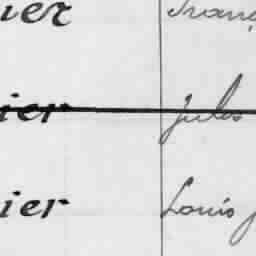 ier Franç
ier Jules
ier Louis